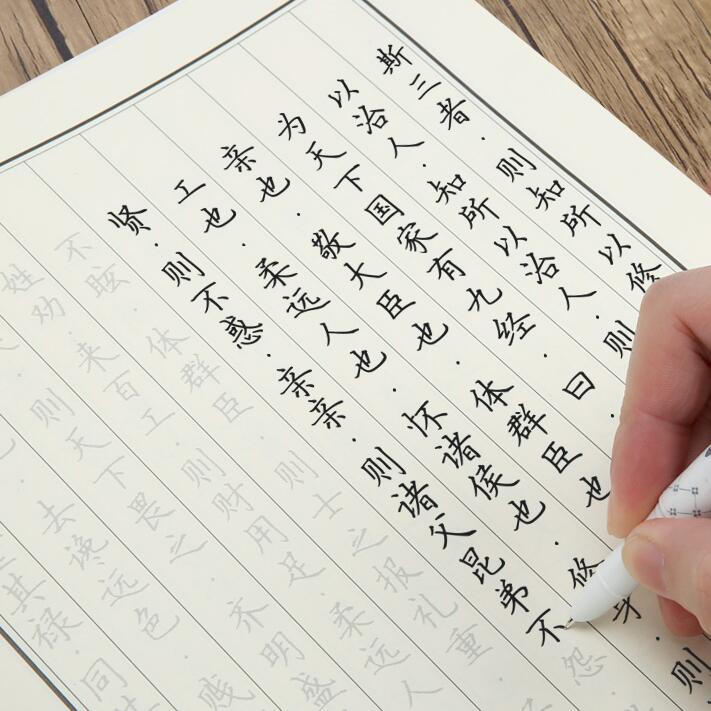 斯三者.则知所以修
以治人.知所以治人.则
为天下国家有九经.曰
亲也.敬大臣也.体群臣也
工也.柔远人也.怀诸侯也.修身.则
贤.则不惑.亲亲.则诸父昆弟不怨
不眩.体群臣.则士之报礼重
姓劝.来百工.则财用足.柔远人
则天下畏之.齐明盛
去谗远色.贱
其禄.同